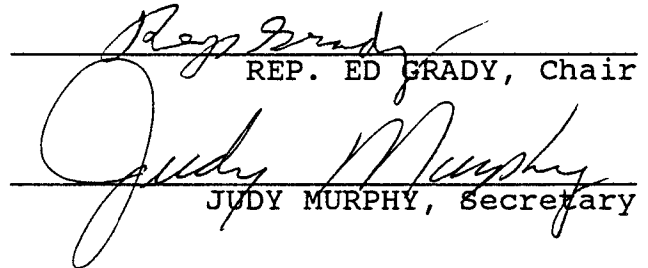 Rep Grady
REP. ED GRADY, Chair
Judy Murphy
JUDY MURPHY, Secretary